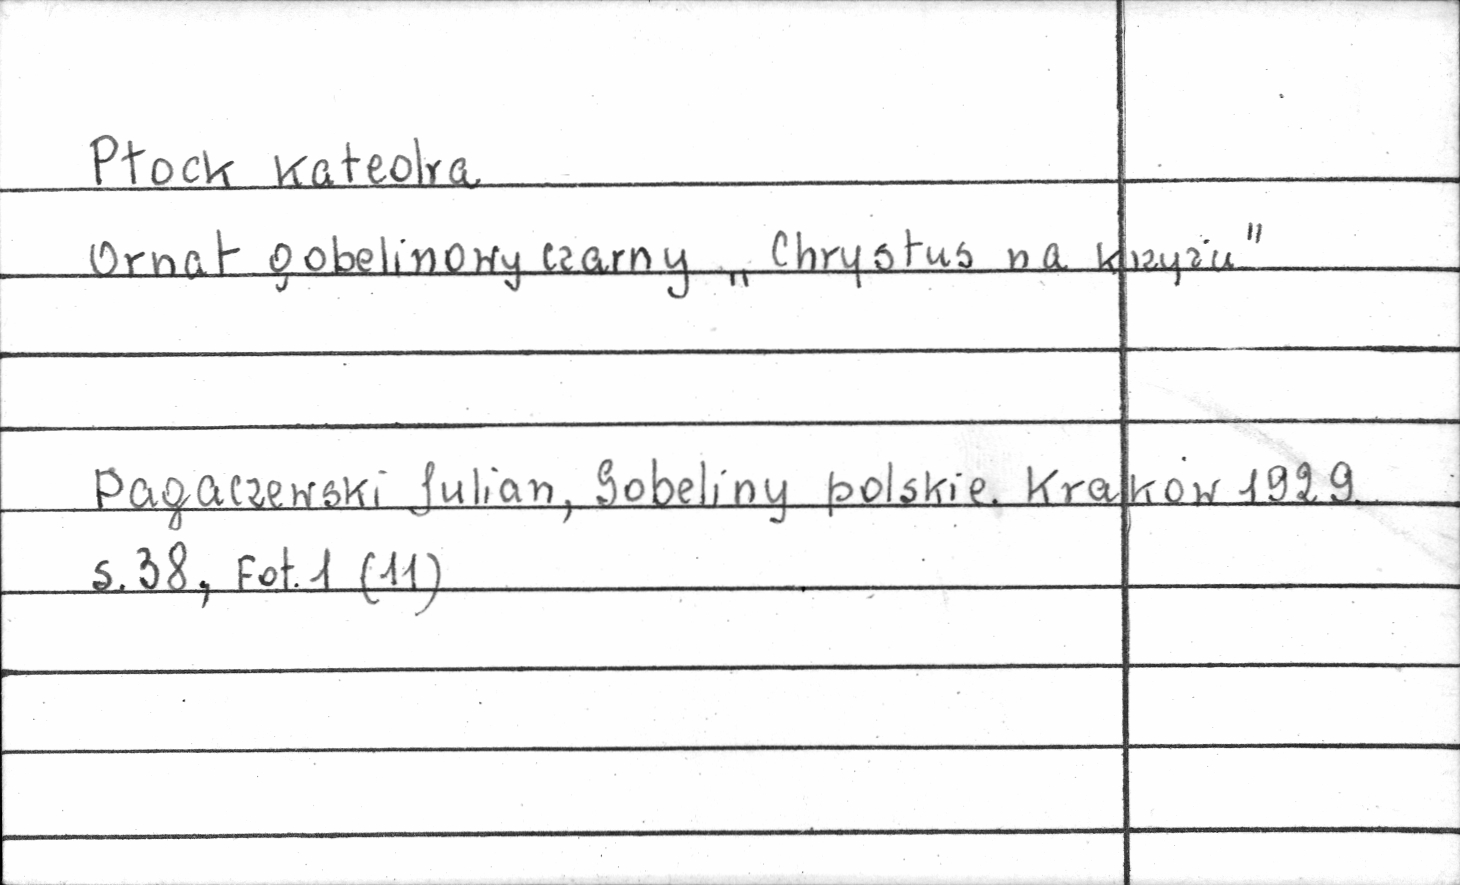 Płock katedra
Ornat gobelinowy czarny „Chrystus na krzyżu"
Pagaczewski Julian, Gobeliny polskie. Kraków 1929.
s. 38, Fot. 1 (11)